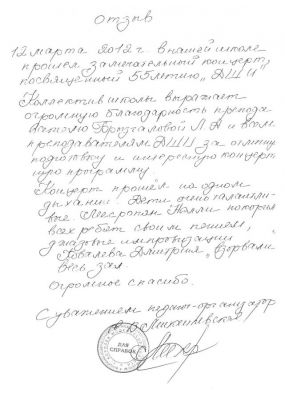 Отзыв
12 марта 2012 г. в нашей школе
прошел замечательный концерт,
посвященный 55летию „ДШИ"
Коллектив школы выражает
огромную благодарность препода-
вателю Л.А и всем
преподавателям ДШИ за отличную
подготовку и интересную концерт
ную программу.
Концерт прошёл на одном
дыхании. Дети очень талантли-
вые. Нэлли покорила
всех ребят своим пением,
джазовые импровизации
Ковалева Дмитрия „взорвали"
весь зал.
Огромное спасибо.
С уважением педагог-организатор
ДЛЯ
СПРАВОК